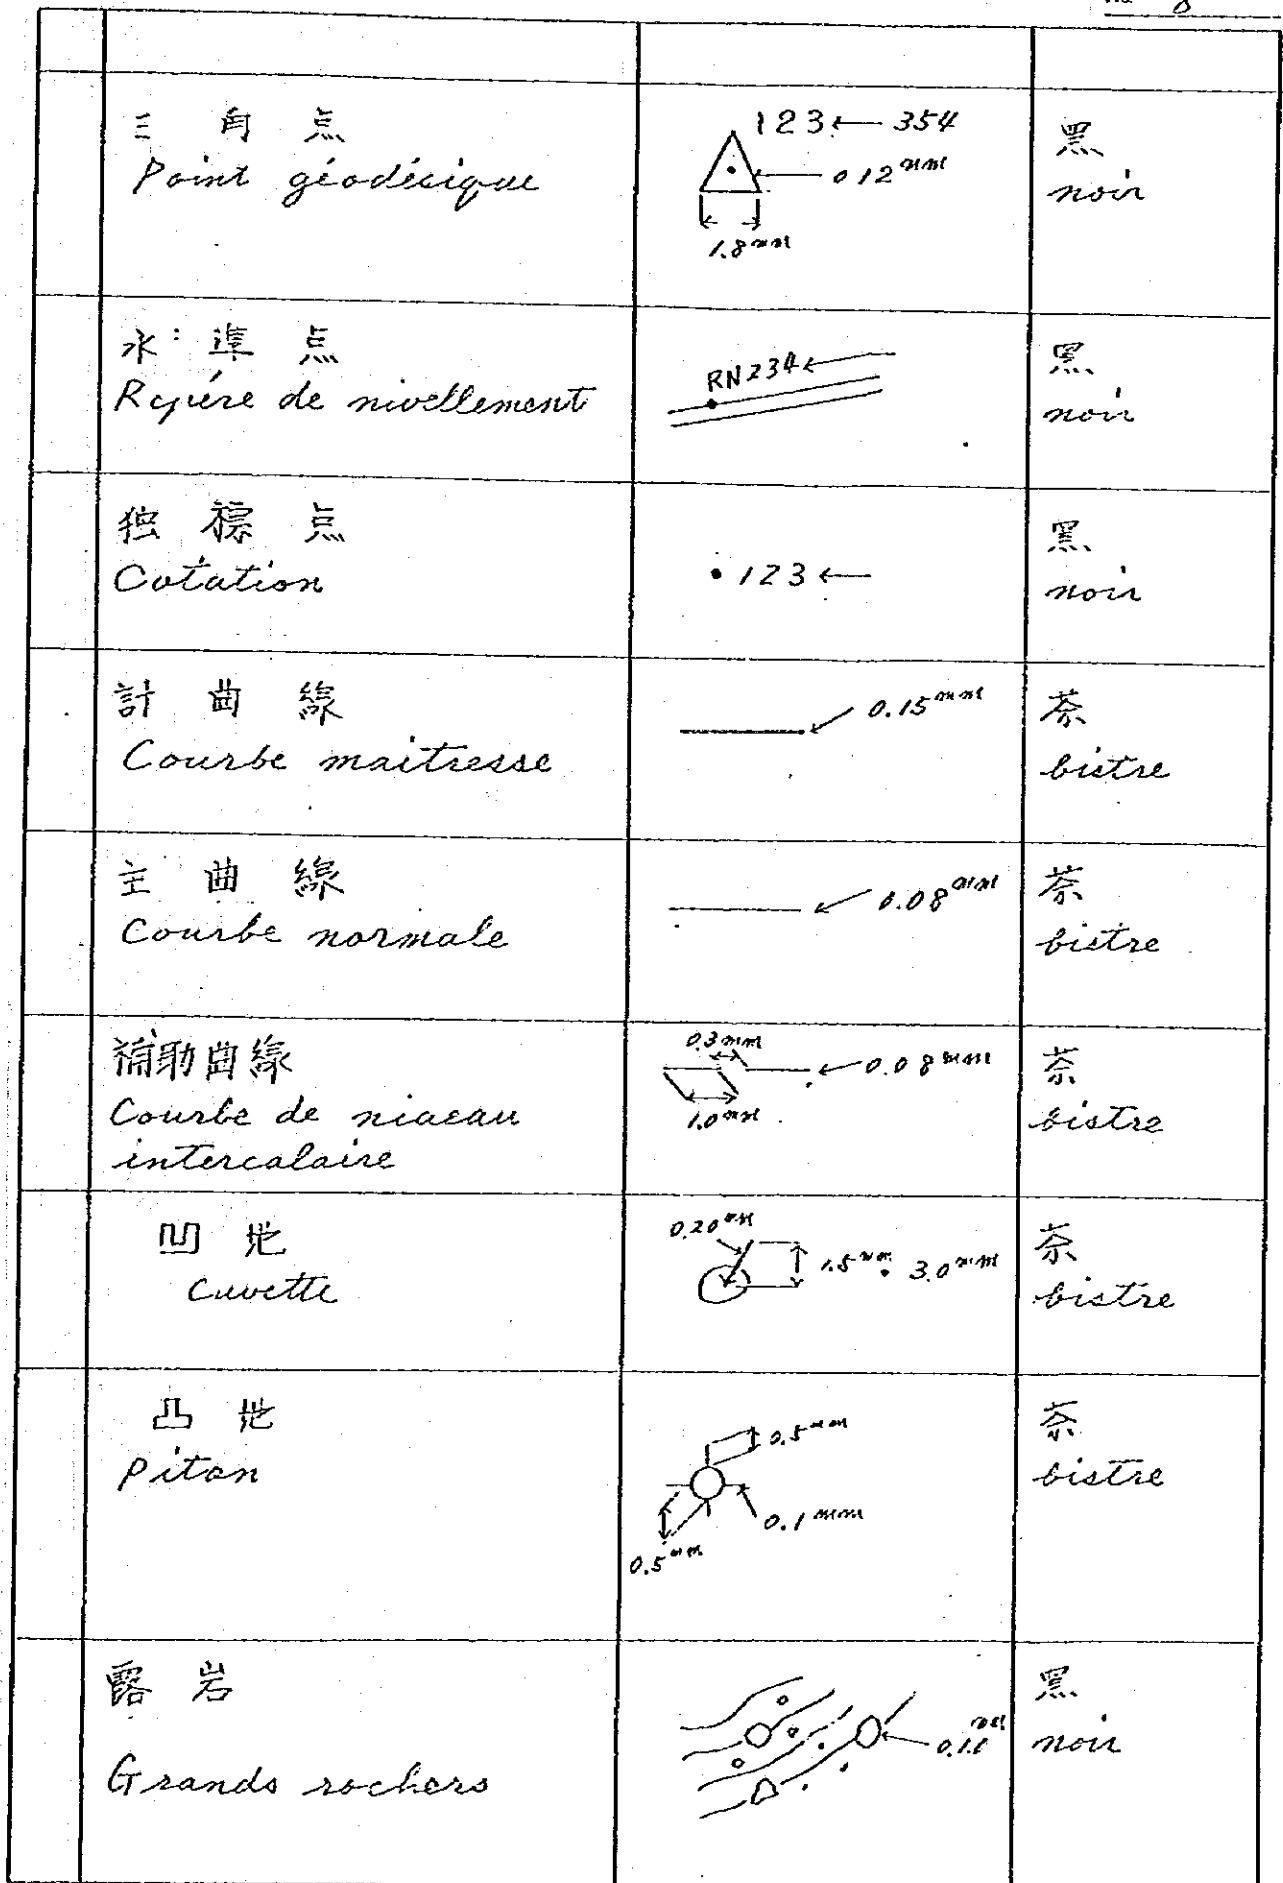 No 8
三角点
Point géodésique
123 ← 354
0.12mm
1.8mm
黒
noir
水準点
Repère de nivellement
RN234
黒
noir
独標点
Cotation
123
黒
noir
計曲線
Courbe maitresse
0.15mm
茶
bistre
主曲線
Courbe normale
0.08mm
茶
bistre
補助曲線
Courbe de niveau
intercalaire
0.3mm
0.08mm
1.0mm
茶
bistre
凹地
Cuvette
0.20mm
1.5mm · 3.0mm
茶
bistre
凸地
Piton
0.5mm
0.1mm
0.5mm
茶
bistre
露岩
Grands rochers
黒
noir